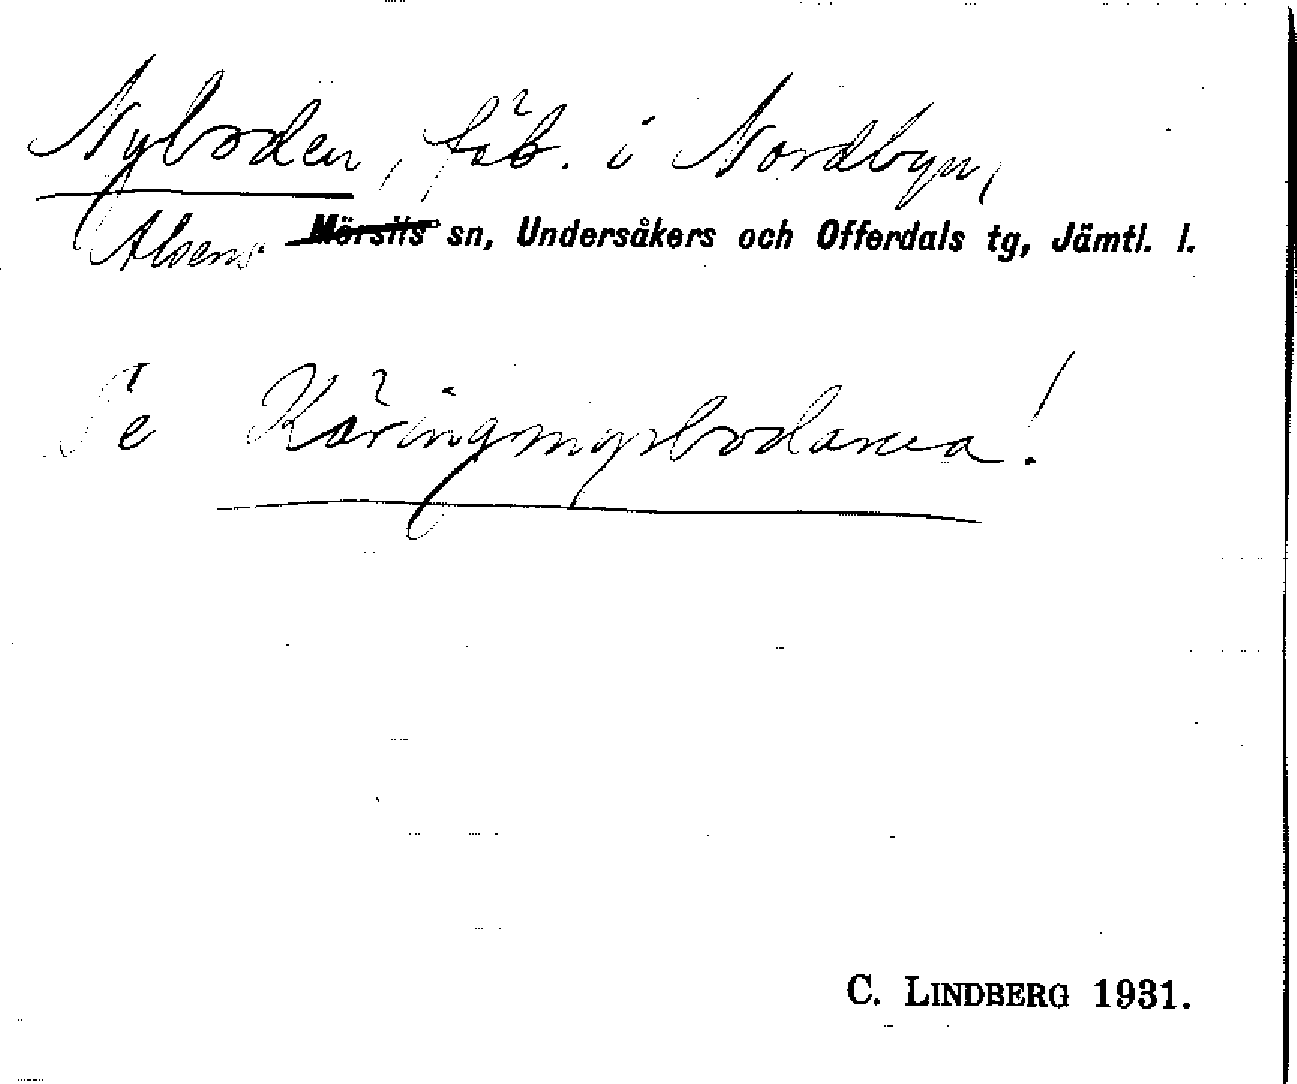 Nyboden, fäb. i Nordbyn,
Alsens Mörsils sn, Undersåkers och Offerdals tg, Jämtl. l.
Se Käringmyrbodarna!
C. LINDBERG 1931.